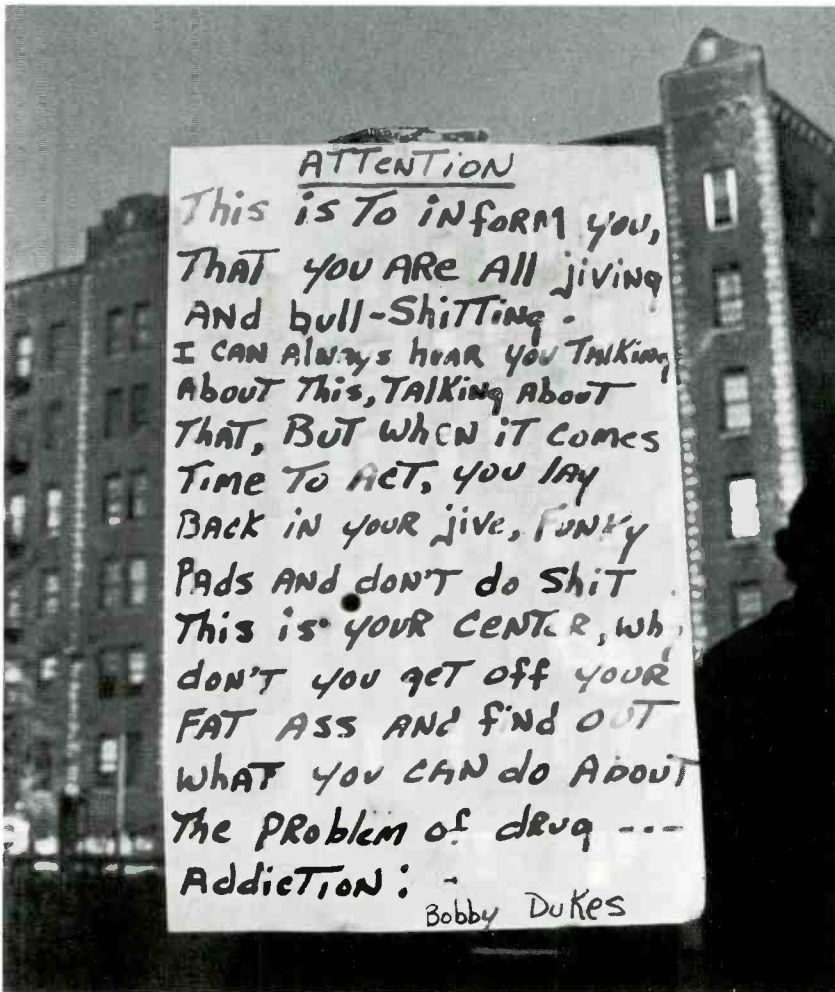 ATTENTION
This is To iNfoRM you,
ThAT you ARe All jiviNg
ANd bull-ShiTTiNg.
I CAN AlwAys heAR you TAlKiNg
About This, TAlKiNg About
ThAT, BuT wheN iT comes
Time To AcT, you lAy
BAcK iN youR jive, FuNKy
PAds ANd doN'T do ShiT
This is youR CeNTeR, why
doN'T you geT off youR
FAT Ass ANd fiNd OuT
whAT you CAN do About
The PRoblem of dRug ---
AddicTioN: -
Bobby DuKes